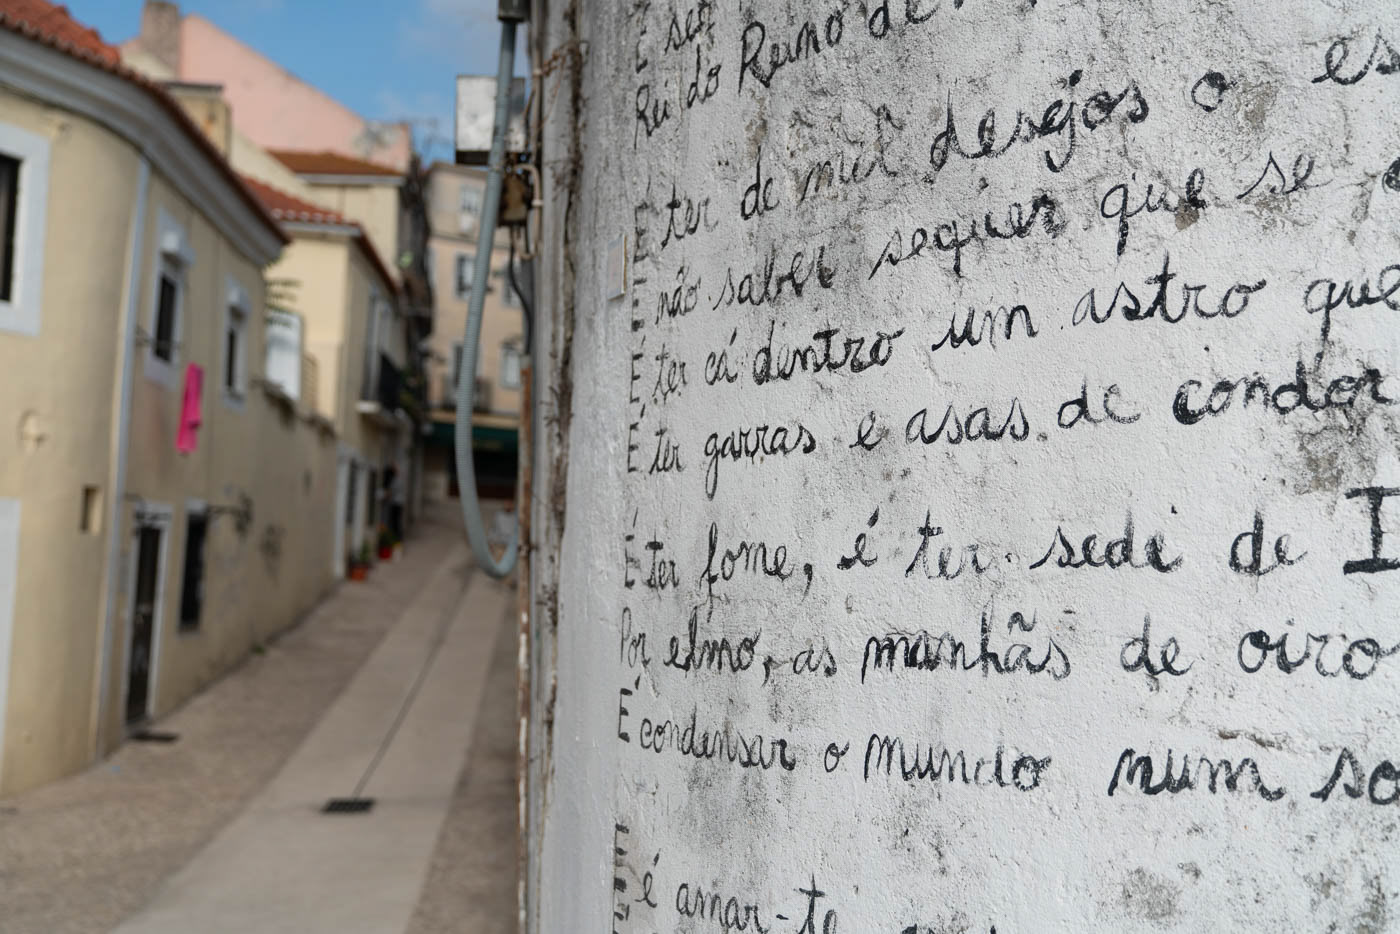 É ser
Rei do Reino de
É ter de mil desejos o es
É não saber sequer que se
É ter cá dentro um astro que
É ter garras e asas de condor
É ter fome, é ter sede de I
Por elmo, as manhãs de oiro
É condensar o mundo num so
E é amar-te